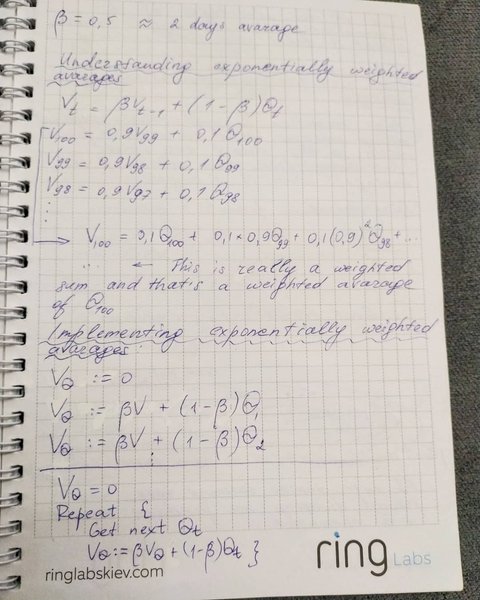 β = 0,5 ≈ 2 days avarage
Understanding exponentially weighted
avarages
V_t = βV_{t-1} + (1-β)Θ_t
V_100 = 0,9V_99 + 0,1Θ_100
V_99 = 0,9V_98 + 0,1Θ_99
V_98 = 0,9V_97 + 0,1Θ_98
⋮
V_100 = 0,1Θ_100 + 0,1×0,9Θ_99 + 0,1(0,9)²Θ_98 + ...
.. ← This is really a weighted
sum and that's a weighted avarage
of Θ_100
Implementing exponentially weighted
avarages
V_Θ := 0
V_Θ := βV + (1-β)Θ_1
V_Θ := βV + (1-β)Θ_2
⋮
V_Θ = 0
Repeat {
Get next Θ_t
V_Θ := βV_Θ + (1-β)Θ_t }
ring Labs
ringlabskiev.com